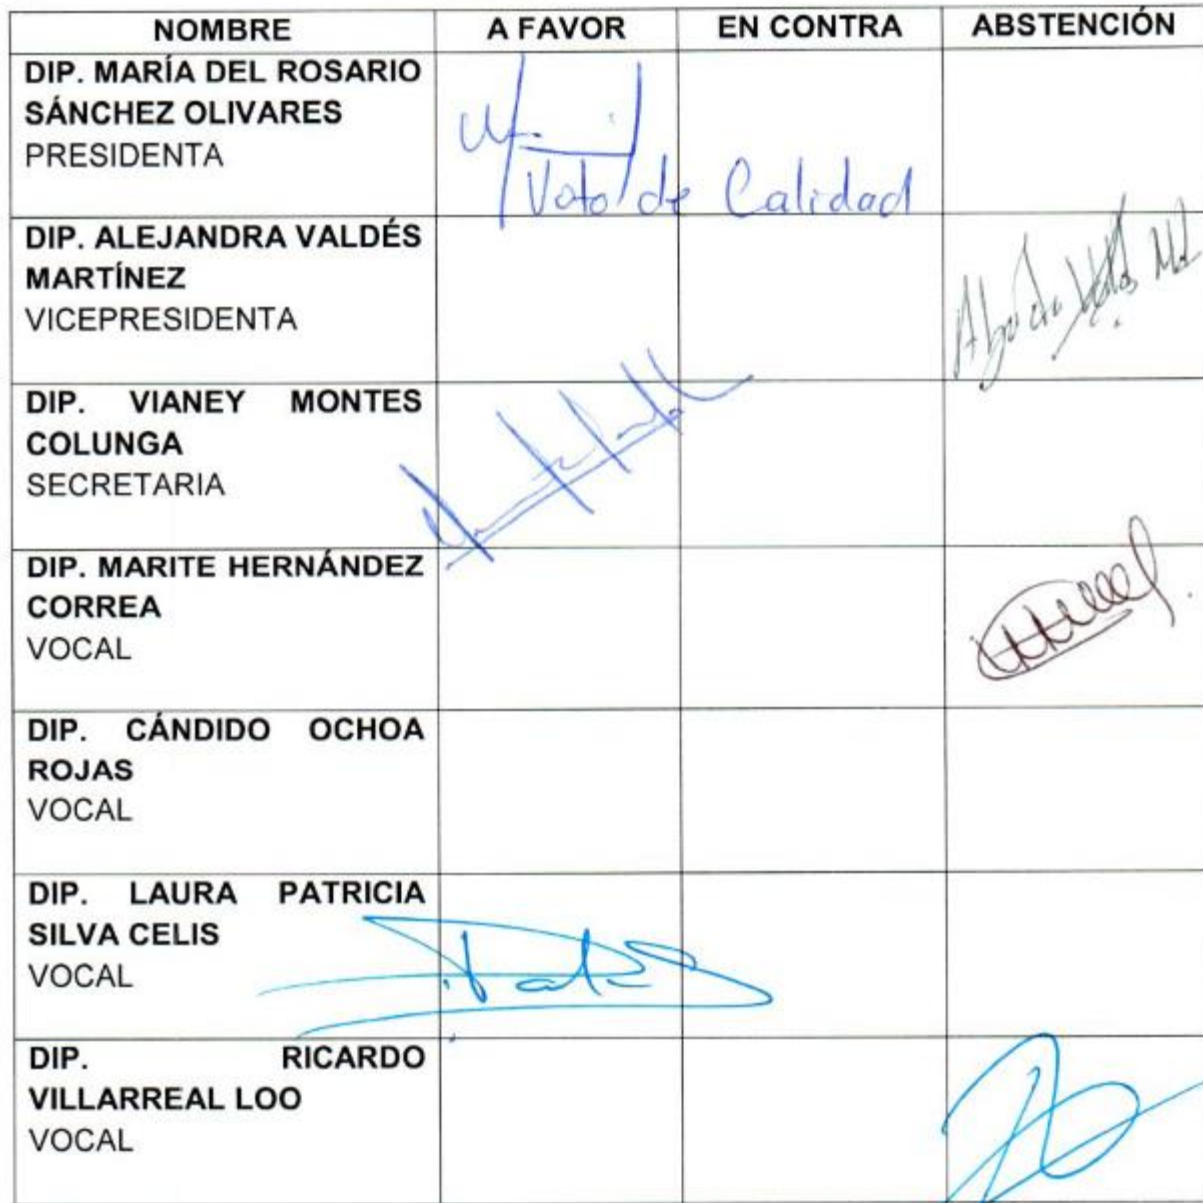 NOMBRE A FAVOR EN CONTRA ABSTENCIÓN
DIP. MARÍA DEL ROSARIO
SÁNCHEZ OLIVARES
PRESIDENTA
Voto de Calidad
DIP. ALEJANDRA VALDÉS
MARTÍNEZ
VICEPRESIDENTA
DIP. VIANEY MONTES
COLUNGA
SECRETARIA
DIP. MARITE HERNÁNDEZ
CORREA
VOCAL
DIP. CÁNDIDO OCHOA
ROJAS
VOCAL
DIP. LAURA PATRICIA
SILVA CELIS
VOCAL
DIP. RICARDO
VILLARREAL LOO
VOCAL